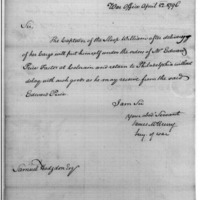 War Office April 12. 1796
Sir,
The Captain of the Sloop William after delivery
of her Cargo will put himself under the orders of Mr Edward
Price Factor at Colerain and return to Philadelphia without
delay with such goods as he may receive from the said
Edward Price
I am Sir
Your Obt Servant
James McHenry
Secy of war
Samuel Hodgdon Esqr